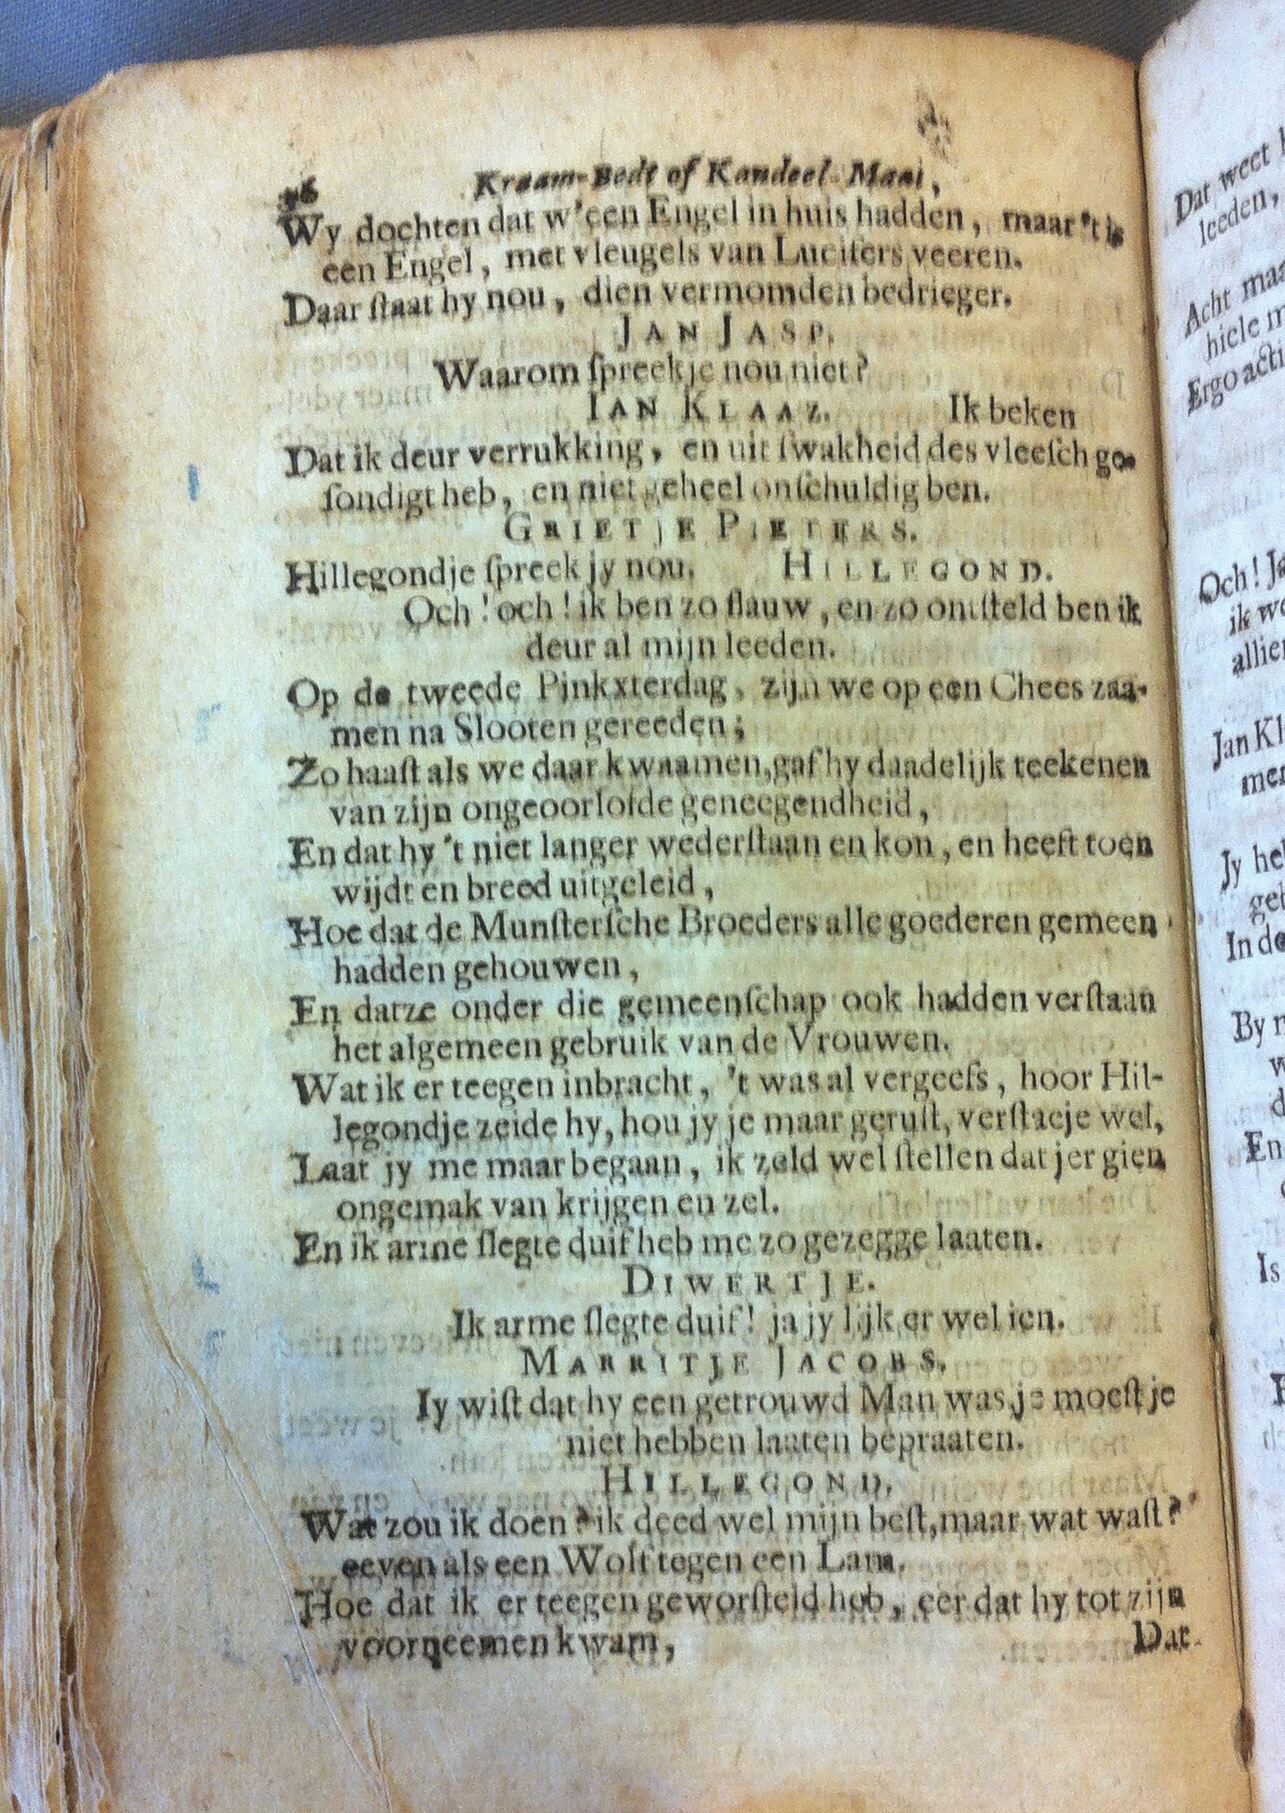 Kraam-Bedt of Kandeel-Maal,
Wy dochten dat w'een Engel in huis hadden, maar 't is
een Engel, met vleugels van Lucifers veeren.
Daar ſtaat hy nou, dien vermomden bedrieger.
JAN JASP.
Waarom ſpreekje nou niet?
IAN KLAAZ. Ik beken
Dat ik deur verrukking, en uit ſwakheid des vleeſch ge-
ſondigt heb, en niet geheel onſchuldig ben.
GRIETJE PIETERS.
Hillegondje ſpreek jy nou. HILLEGOND.
Och! och! ik ben zo flauw, en zo ontſteld ben ik
deur al mijn leeden.
Op de tweede Pinkxterdag, zijn we op een Chees zaa-
men na Slooten gereeden;
Zo haaſt als we daar kwaamen, gaf hy daadelijk teekenen
van zijn ongeoorlofde geneegendheid,
En dat hy 't niet langer wederſtaan en kon, en heeft toen
wijdt en breed uitgeleid,
Hoe dat de Munſterſche Broeders alle goederen gemeen
hadden gehouwen,
En datze onder die gemeenſchap ook hadden verſtaan
het algemeen gebruik van de Vrouwen.
Wat ik er teegen inbracht, 't was al vergeefs, hoor Hil-
legondje zeide hy, hou jy je maar geruſt, verſtaeje wel,
Laat jy me maar begaan, ik zeld wel ſtellen dat jer gien
ongemak van krijgen en zel.
En ik arme ſlegte duif heb me zo gezegge laaten.
DIWERTJE.
Ik arme ſlegte duif! ja jy lijk er wel ien.
MARRITJE JACOBS.
Iy wiſt dat hy een getrouwd Man was, je moeſt je
niet hebben laaten bepraaten.
HILLEGOND.
Wat zou ik doen? ik deed wel mijn beſt, maar wat waſt?
eeven als een Wolf tegen een Lam.
Hoe dat ik er teegen geworſteld heb, eer dat hy tot zijn
voorneemen kwam,
Dat
Dat weet
leeden,
Acht maa
hiele m
Ergo acti
Och! Ja
ik wo
allie
Jan Kl
men
Jy he
ge
In de
By
w
d
En
Is